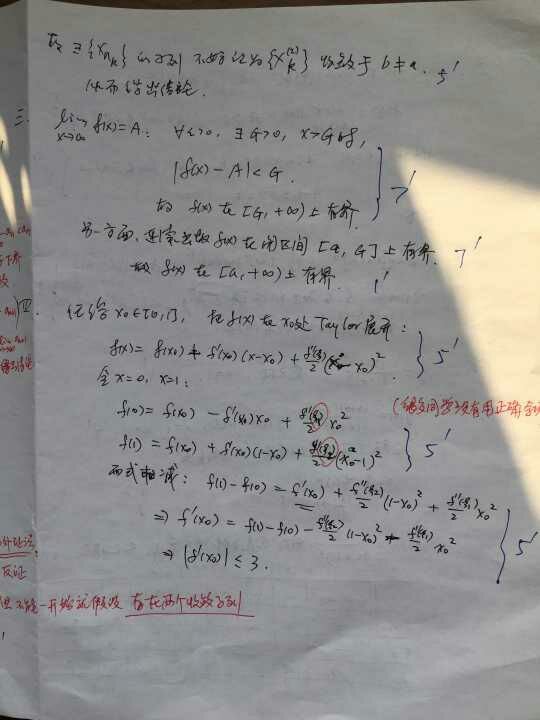 故 ∃{x_{n_k}} 的子列 不妨记为{x_k^{(2)}} 收敛于 b≠a. 5'
从而得出结论.
三. lim_{x→∞} f(x)=A: ∀ε>0, ∃G>0, x>G时,
|f(x)-A|<G. 7'
故 f(x) 在 [G,+∞)上有界.
另一方面, 连续函数 f(x) 在闭区间 [a, G]上有界. 7'
故 f(x) 在 [a,+∞)上有界. 1'
Ⅳ. 任给 x_0∈[0,1], 把f(x)在x_0处Taylor展开:
f(x)= f(x_0)+f'(x_0)(x-x_0)+\frac{f''(ξ)}{2}(x-x_0)^2 5'
令 x=0, x=1:
f(0)= f(x_0) - f'(x_0)x_0 + \frac{f''(ξ_1)}{2}x_0^2
f(1)= f(x_0)+f'(x_0)(1-x_0)+\frac{f''(ξ_2)}{2}(x_0-1)^2 5'
两式相减: f(1)-f(0)=f'(x_0)+\frac{f''(ξ_2)}{2}(1-x_0)^2+\frac{f''(ξ_1)}{2}x_0^2
⇒ f'(x_0)=f(1)-f(0)-\frac{f''(ξ_2)}{2}(1-x_0)^2 + \frac{f''(ξ_1)}{2}x_0^2 5'
⇒ |f'(x_0)|≤3.
反证
一开始就假设 存在两个收敛子列